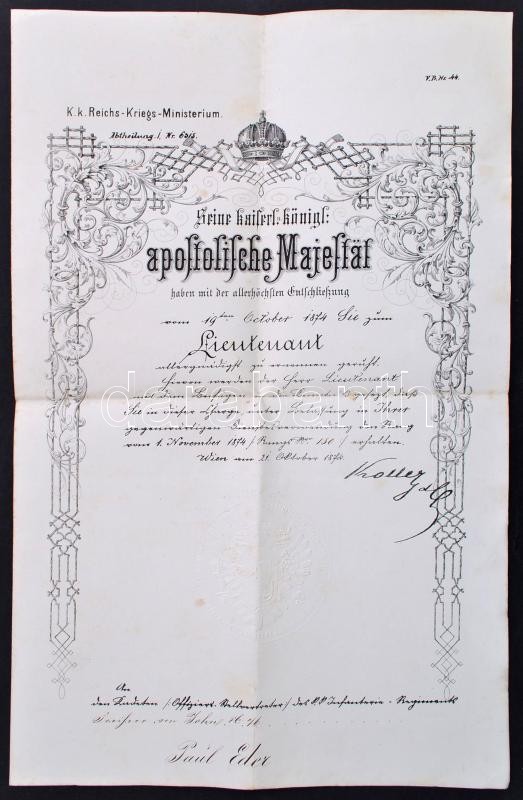 V.B. Nr. 44.
K.k. Reichs-Kriegs-Ministerium.
Abtheilung 1, Nr. 6515.
Seine kaiserl: königl:
apostolische Majestät
haben mit der allerhöchsten Entschließung
vom 19ten October 1874 Sie zum
Lieutenant
allergnädigst zu ernennen geruht.
Hievon werden der Herr Lieutenant
mit dem in Kenntniß gesetzt, daß
Sie in dieser Charge, unter Belassung in Ihrer
gegenwärtigen Dienstesverwendung den Rang
vom 1. November 1874 / Rangs Nro 150 / erhalten.
Wien am 21. Oktober 1874.
Koller
darabanth
An
den Kadeten / Offiziers-Stellvertreter / des k.k. Infanterie-Regiments
Freiherr von John N. 76.
Paul Eder